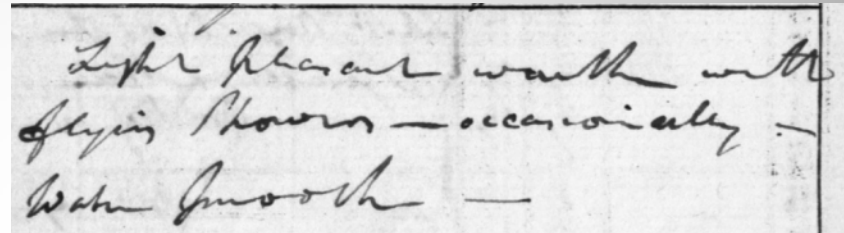 Light pleasant weath with
flying Showers — occasionally —
Water Smooth —